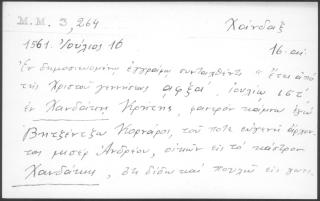 Μ.Μ. 3, 264 Χάνδαξ
1561. Ἰούλιος 16 16. αἰ.
Ἐν δημοσιευομένῳ ἐγγράφῳ συνταχθέντι "ἔτει ἀπὸ
τῆς Χριστοῦ γεννήσεως αφξα. ἰουλίῳ ιστ΄
ἐν Χανδάκῃ Κρήτης, φανερὸν κάμνω ἐγὼ
Βητζέντζω Κορνάρος, τοῦ ποτε εὐγενῆ ἄρχον-
τας μισὲρ Ἀνδρέου, οἰκῶν εἰς τὸ κάστρον
Χανδάκης, ὅτι δίδω καὶ πουλῶ εἰς